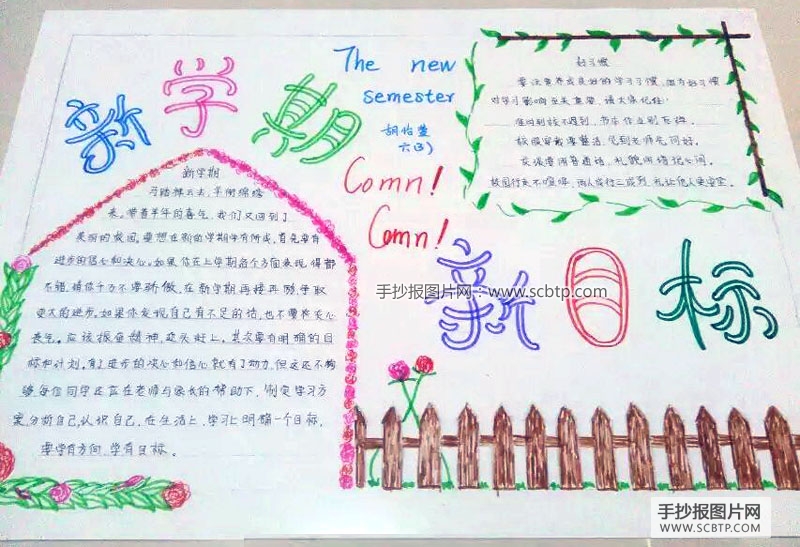 新学期
The new
semester
六(3)
Comn!
Comn!
新目标
好习惯
养成良好的学习习惯,因为好习惯
对学习影响至关重要,请大家记住:
准时到校不迟到,书本作业别忘掉。
校服穿戴要整洁,见到老师先问好。
要用普通话,礼貌用语记心间。
校园行走不喧哗,两人成行三成列,礼让他人更安全。
新学期
马踏祥云去,羊衔绵绣
来。带着羊年的喜气,我们又回到了
美丽的校园。要想在新的学期中有所成,首先要有
进步的信心和决心。如果你在上学期各个方面表现得都
不错,请你千万不要骄傲,在新学期再接再励,争取
更大的进步。如果你发现自己有不足的话,也不要灰心
丧气。应该振奋精神,迎头赶上。其次要有明确的目
标和计划。有了进步的决心和信心就有了动力,但这还不够
够,每位同学还应在老师与家长的帮助下,制定学习方
案,分析自己,认识自己,在生活上、学习上明确一个目标,
要学有方向,学有目标。
手抄报图片网:www.scbtp.com
手抄报图片网
WWW.SCBTP.COM